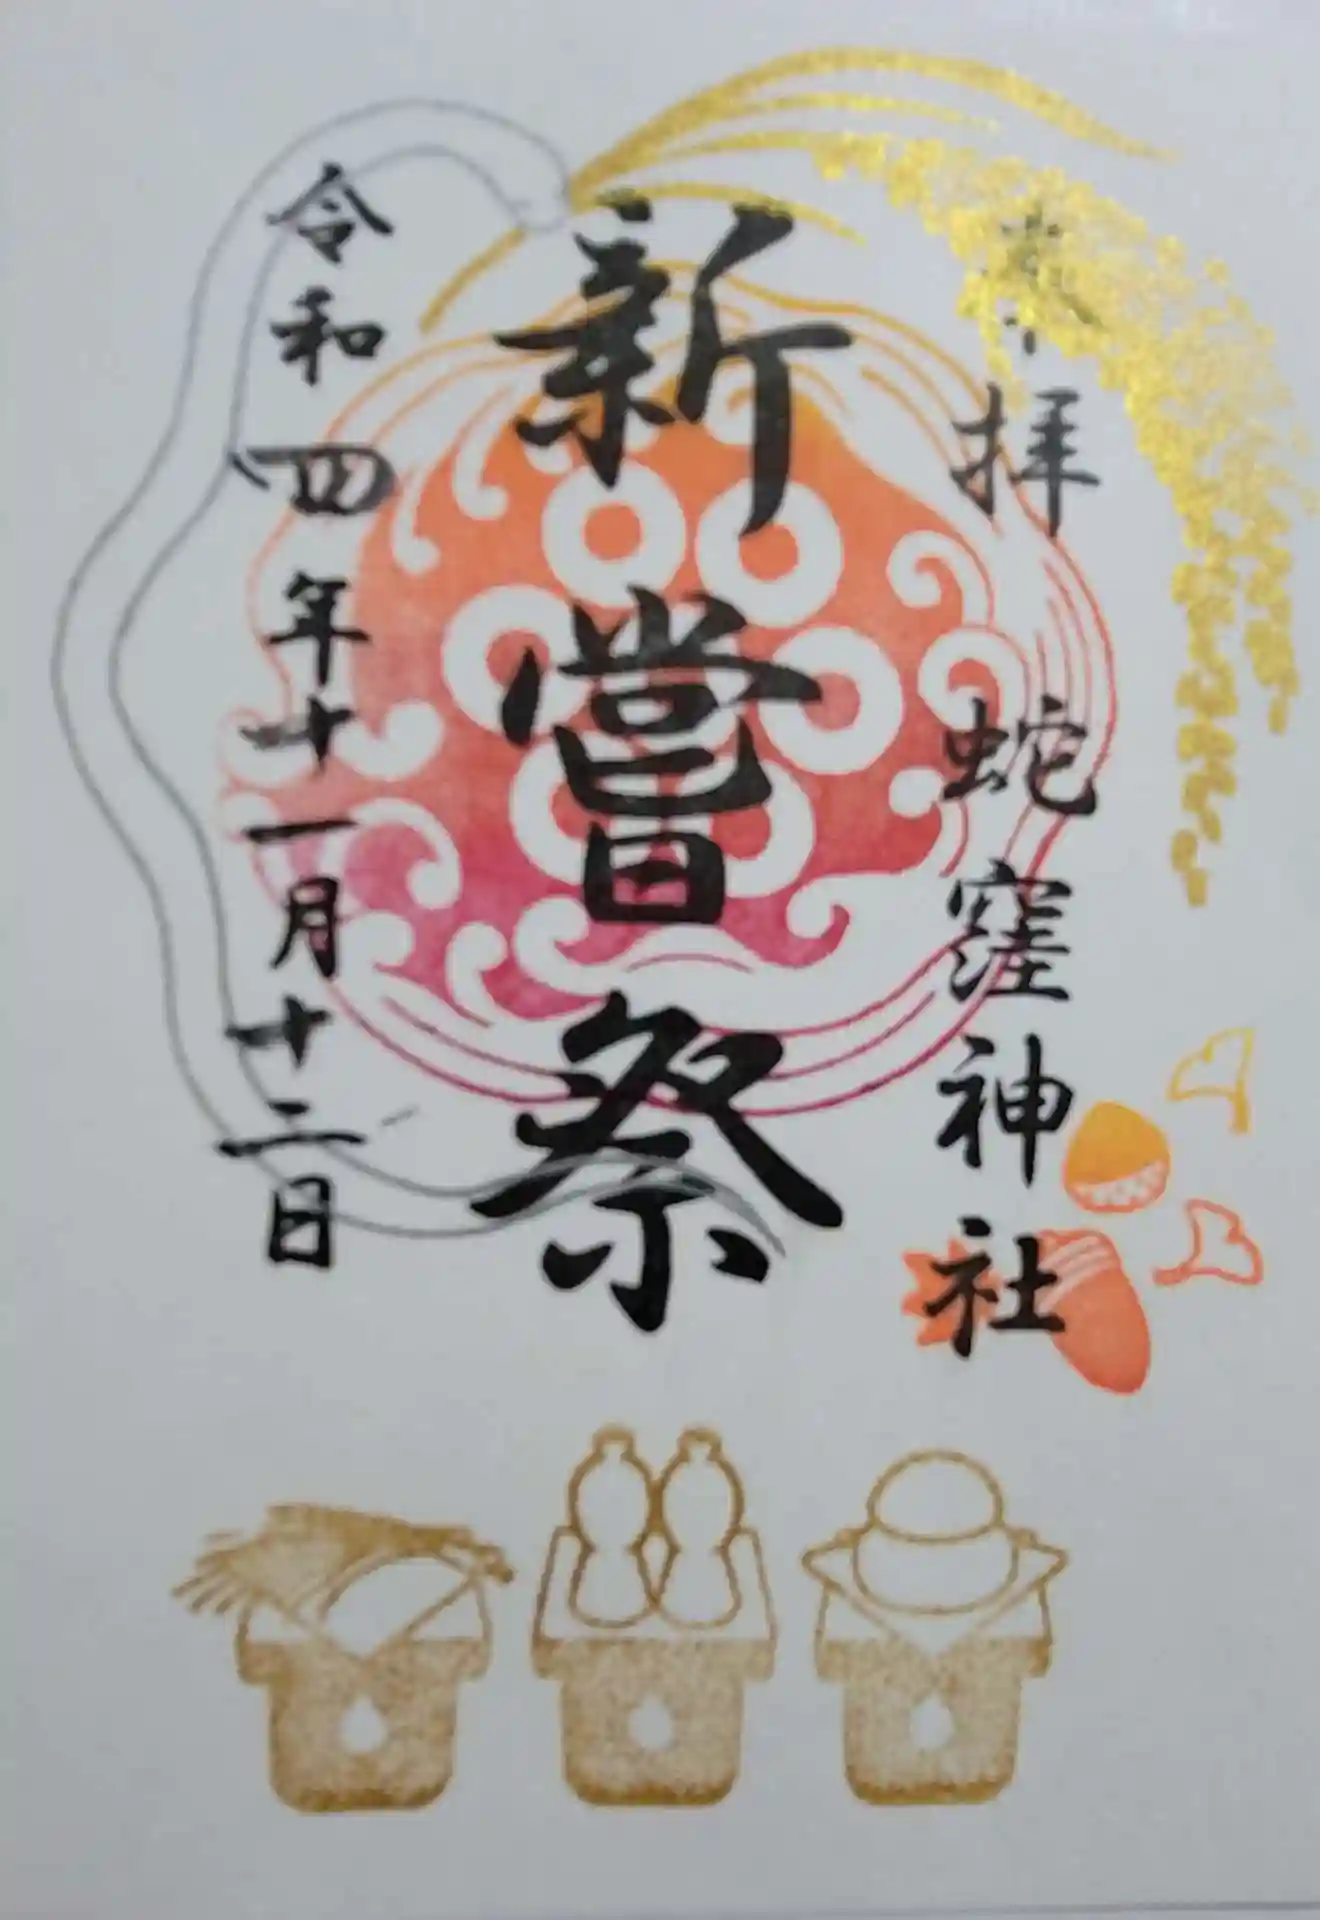 奉拝 蛇窪神社
新嘗祭
令和四年十一月十二日